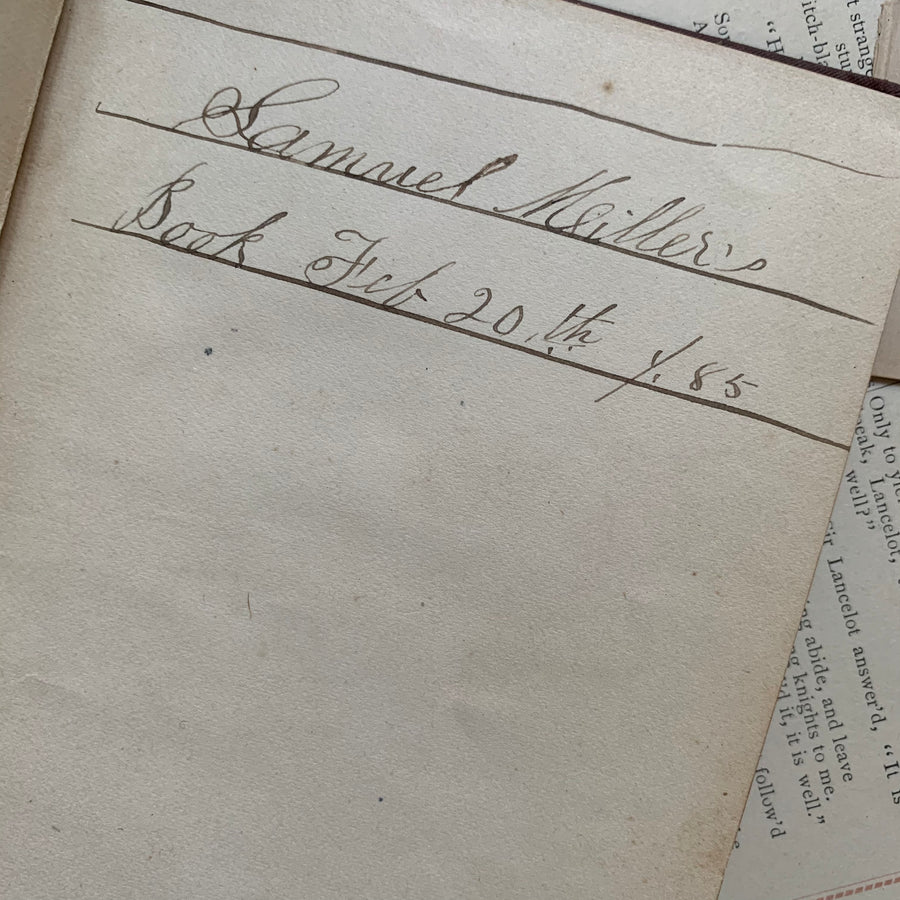 Samuel Meiller's
Book Feb 20.th /. 85
t strange
stu
itch-bla
"H
So
A
Only to yie
peak, Lancelot,
well?"
Sir Lancelot answer'd, "It is
ing abide, and leave
ng knights to me.
'd it, it is well."
follow'd